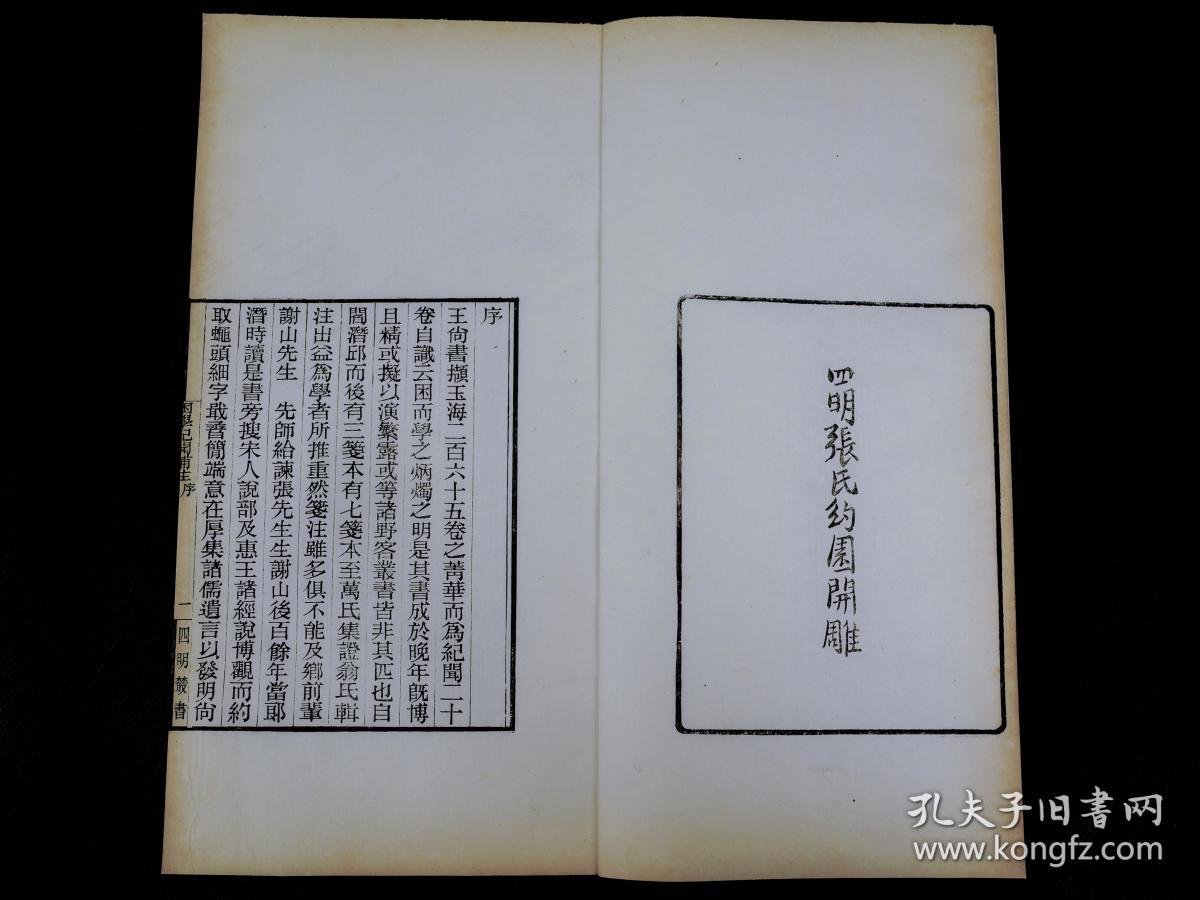 四明張氏約園開雕
序
王尙書擷玉海二百六十五卷之菁華而爲紀聞二十
卷自識云困而學之炳燭之明是其書成於晚年旣博
且精或擬以演繁露或等諸野客叢書皆非其匹也自
閻潛邱而後有三箋本有七箋本至萬氏集證翁氏輯
注出益爲學者所推重然箋注雖多俱不能及鄕前輩
謝山先生　先師給諫張先生生謝山後百餘年當耶
潛時讀是書旁搜宋人說部及惠王諸經說博觀而約
取蠅頭細字戢香簡端意在厚集諸儒遺言以發明尙
困學紀聞補注序
一
四明叢書
孔夫子旧书网
www.kongfz.com